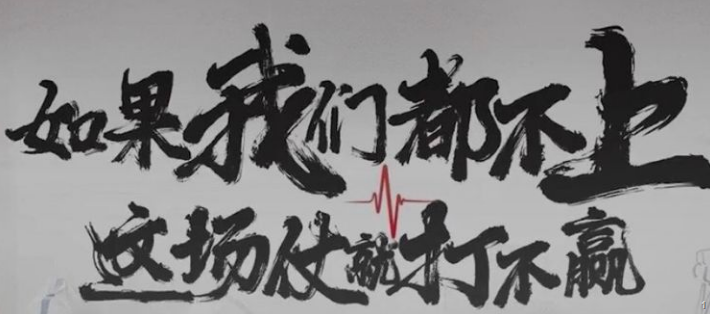 如果我们都不上
这场仗就打不赢